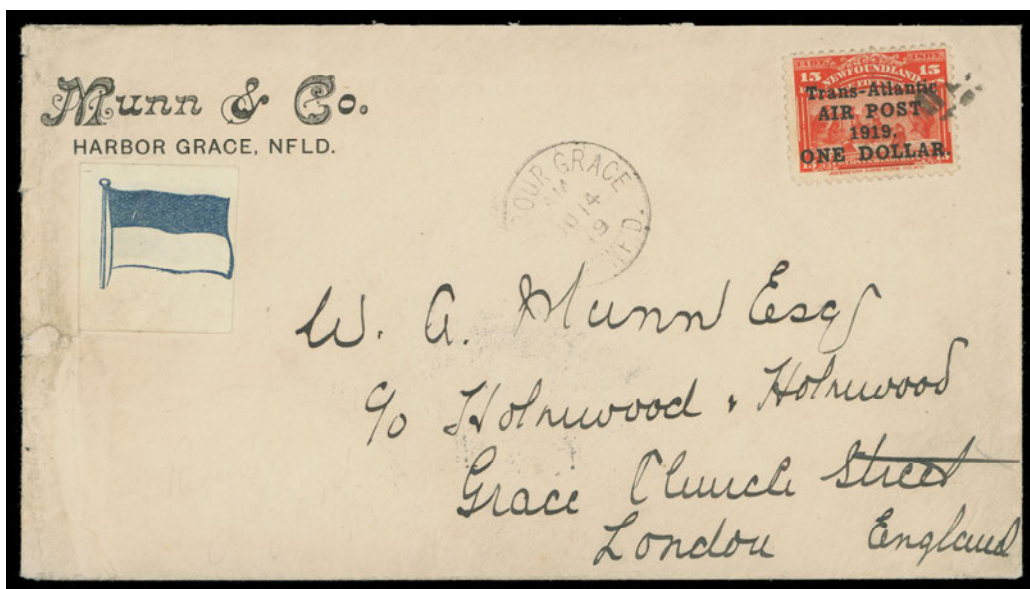 Munn & Co.
HARBOR GRACE, NFLD.
1497 1897
15 NEWFOUNDLAND 15
Trans-Atlantic
AIR POST
1919.
ONE DOLLAR.
OUR GRACE
AM
14
19
NFD.
W. A. Munn Esq
c/o Holmwood & Holmwood
Grace Church Street
London England